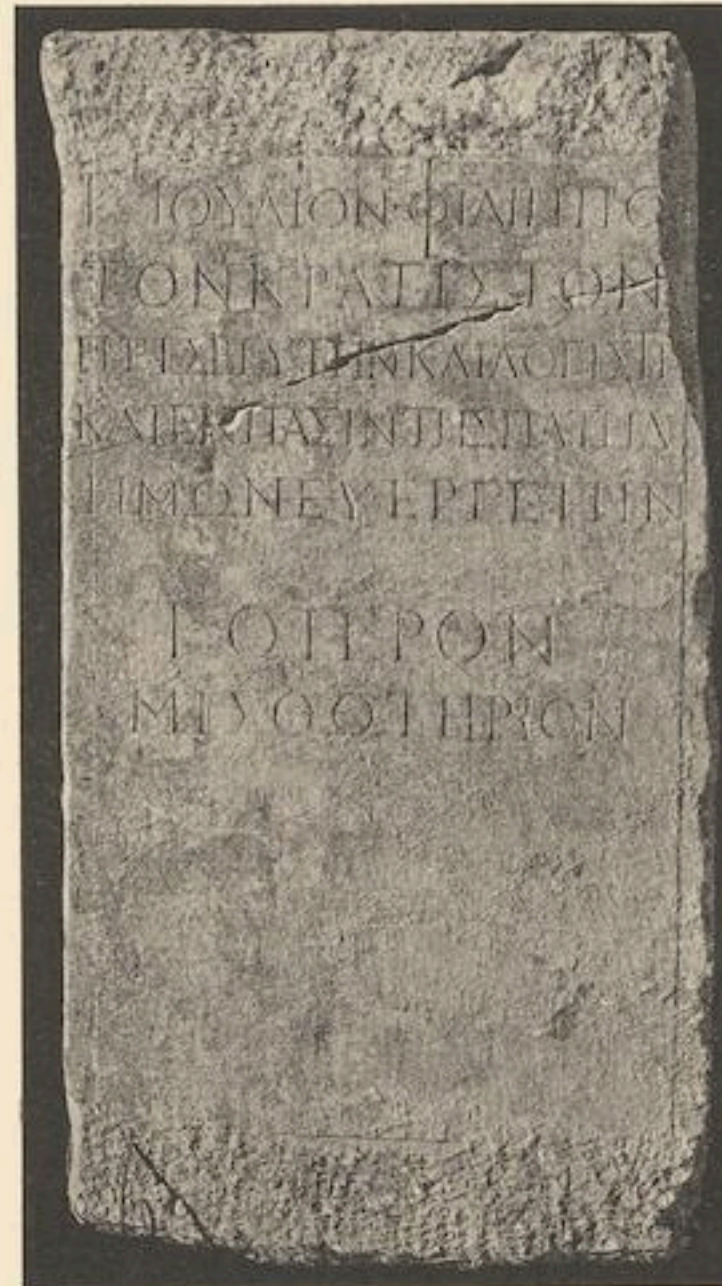 Γ ΙΟΥΛΙΟΝ·ΦΙΛΙΠΠΟ
ΤΟΝΚΡΑΤΙΣΤΟΝ
ΠΡΕΣΒΕΥΤΗΝΚΑΙΛΟΓΙΣΤΗ
ΚΑΙΕΝΠΑΣΙΝΤΗΣΠΑΤΡΙΔ
ΗΜΩΝΕΥΕΡΓΕΤΗΝ
ΤΟΙΕΡΟΝ
ΜΙΣΘΩΤΗΡΙΟΝ